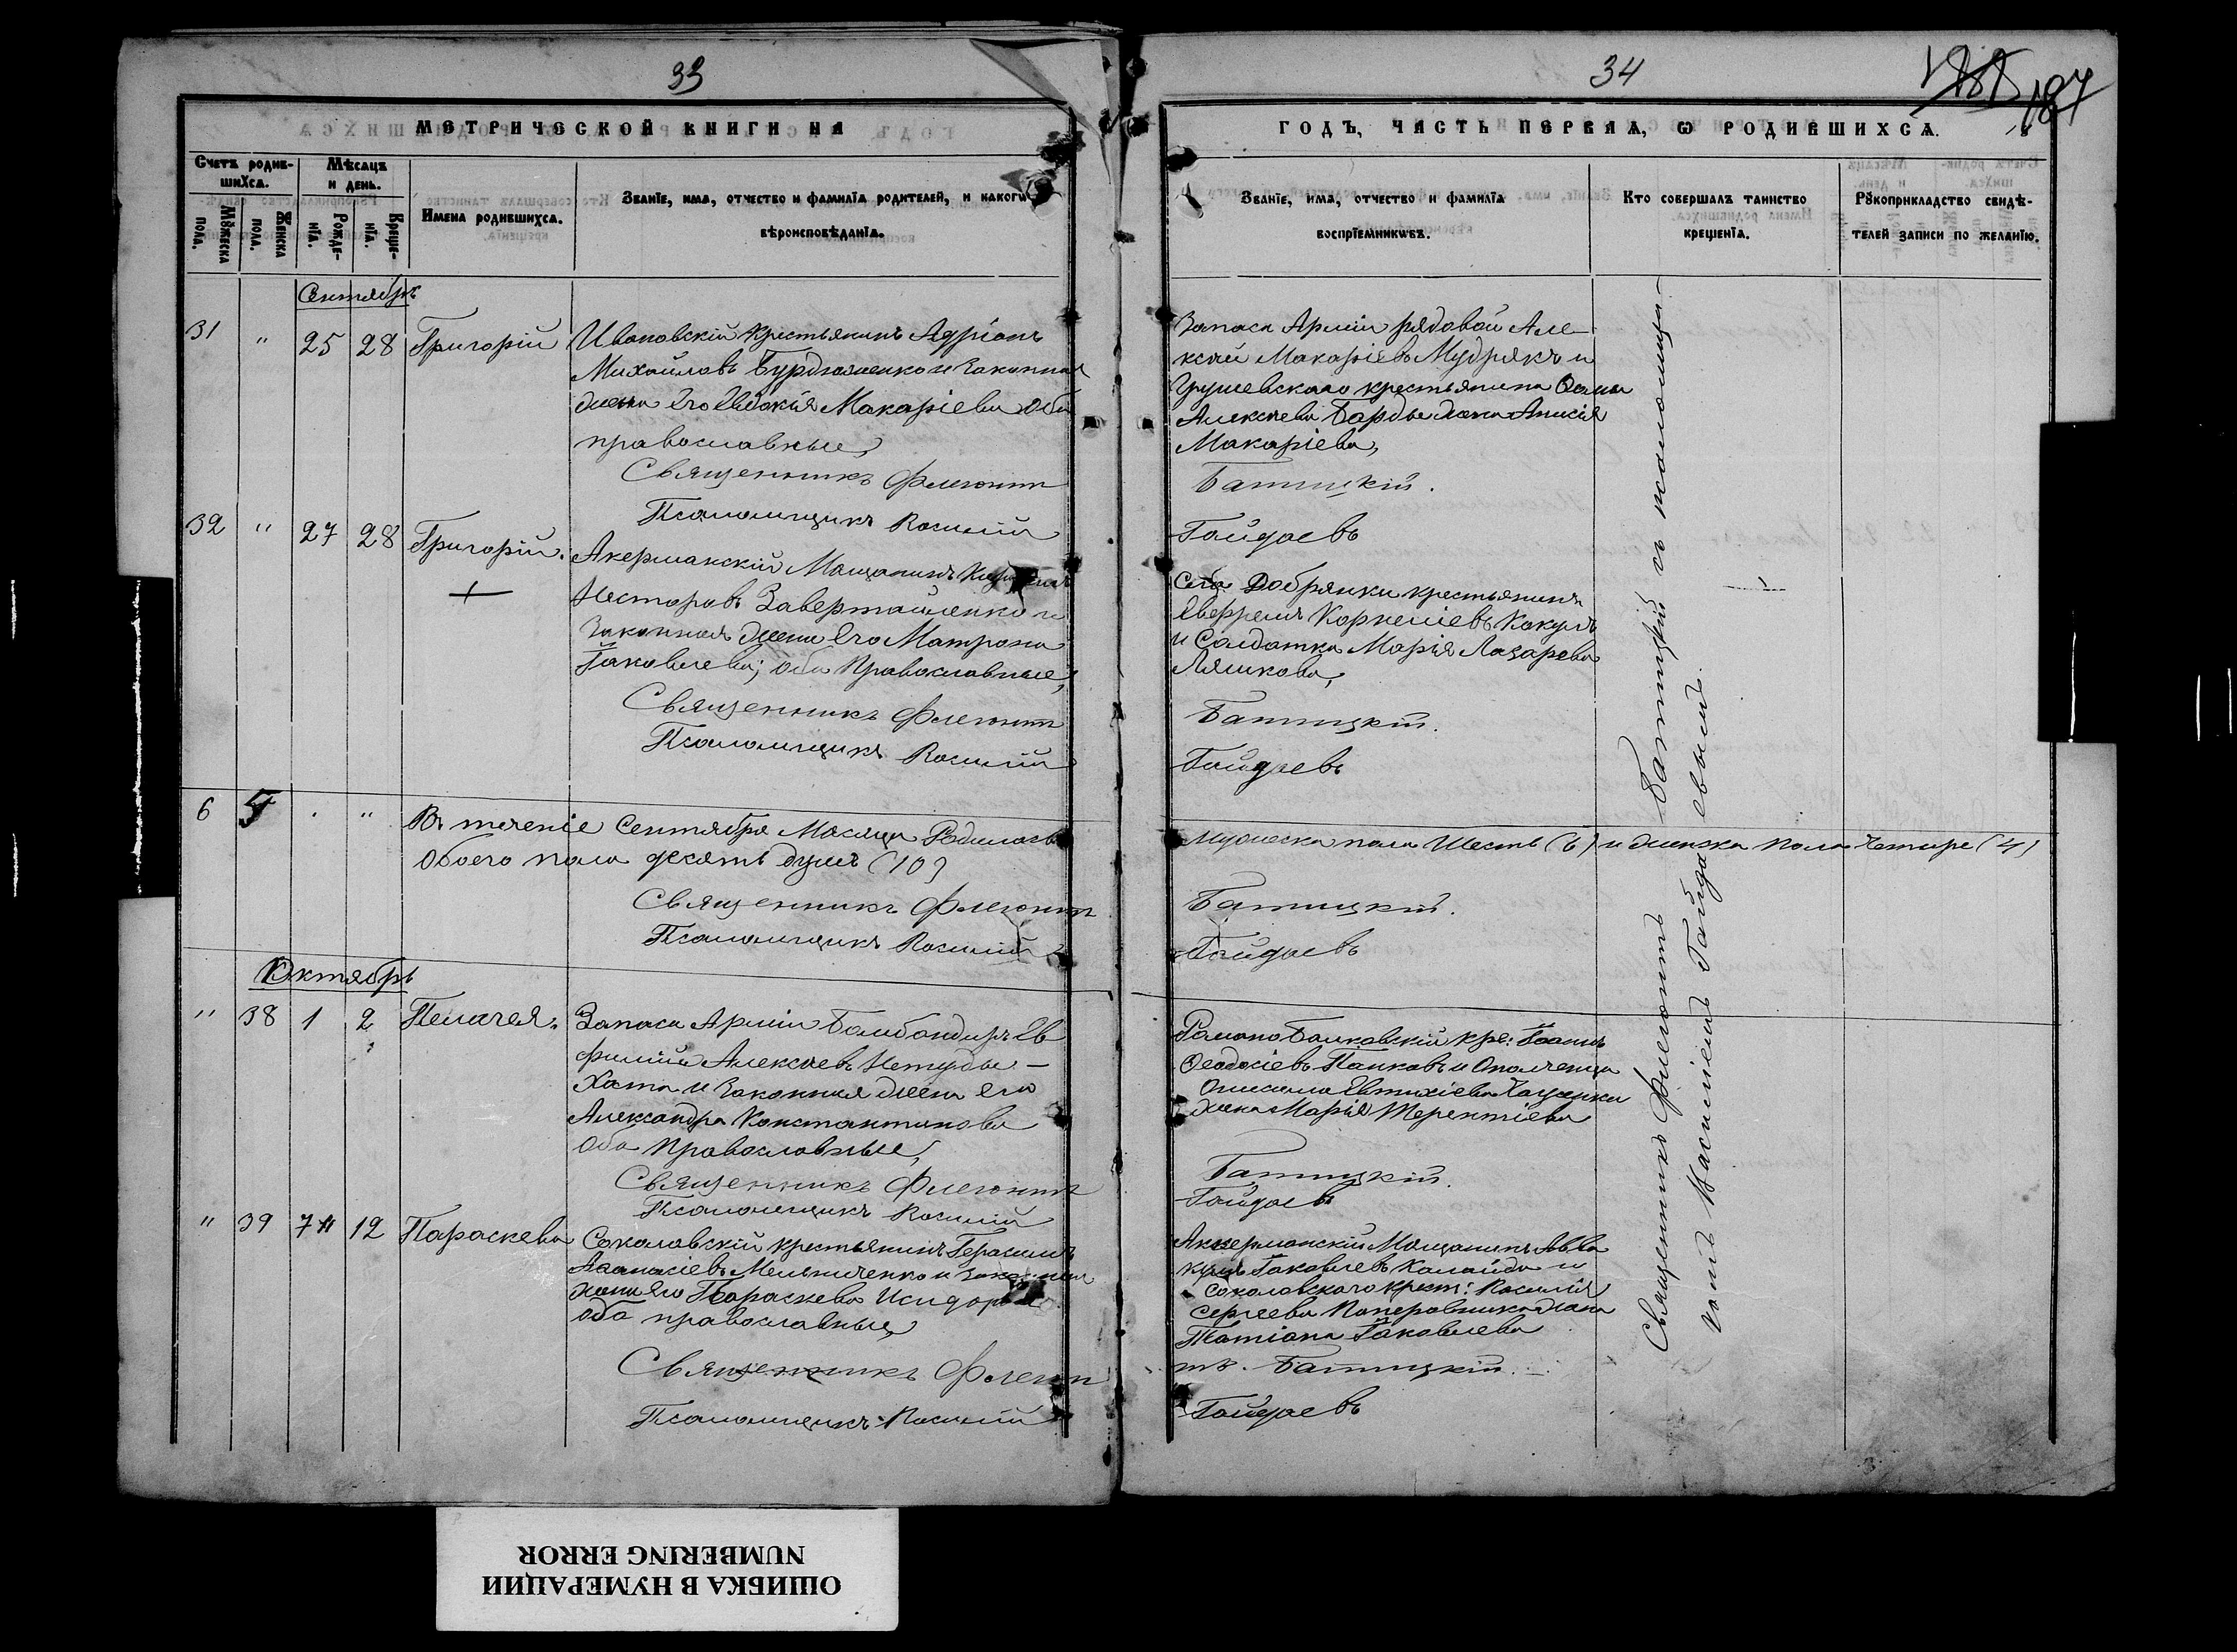 33
МЕТРИЧЕСКОЙ КНИГИ НА
Счетъ родив-
шихсѧ.
Мѣсѧцъ
и день.
Мꙋжеска
пола.
Женска
пола.
Рожде-
нїѧ.
Креще-
нїѧ.
Имена родившихсѧ.
Званїе, имѧ, отчество и фамилїѧ родителей, и какогѡ
вѣроисповѣданїѧ.
Сентябрь
31 " 25 28 Григорій
Ивановскій крестьянинъ Адріанъ
Михайловъ и законная
жена его Евдокія Макаріева оба
православные,
Священникъ Флегонтъ
Псаломщикъ Василій
32 " 27 28 Григорій.
Акерманскій Мѣщанинъ
Несторовъ Заверташенко и
законная жена его Матрона
Іаковлева; оба Православные,
Священникъ Флегонтъ
Псаломщикъ Василій
6 4 " "
Въ теченіе Сентября Мѣсяца Родилось
обоего пола десять душъ (10)
Священникъ Флегонтъ
Псаломщикъ Василій
Октябрь
" 38 1 2 Пелагея.
Запаса Арміи Бомбандиръ Ев
фимій Алексѣевъ Нетуды-
Хата и законная жена его
Александра Константинова
оба Православные,
Священникъ Флегонтъ
Псаломщикъ Василій
" 39 7 12 Параскева
Соколовскій крестьянинъ Герасимъ
Аѳанасіевъ Мельниченко и законная
жена его Параскева Исидорова
оба православные,
Священникъ Флегон
Псаломщикъ Василій
34
187
ГОДЪ, ЧАСТЬ ПЕРВАѦ, Ѡ РОДИВШИХСѦ.
Званїе, имѧ, отчество и фамилїѧ
воспрїемникѡвъ.
Кто совершалъ таинство
крещенїѧ.
Рꙋкоприкладство свидѣ-
телей записи по желанїю.
Запаса Арміи рядовой Але-
ксѣй Макаріевъ Мудрякъ и
Грушевскаго крестьянина Ѳомы
Алексѣева жена Анисія
Макаріева,
Батицкій.
Гайдаевъ
Села Добрянки крестьянинъ
Евфремъ Корнеліевъ
и Солдатка Марія Лазарева
Ляшкова,
Батицкій.
Гайдаевъ
Мужеска пола Шесть (6) и женска пола Четыре (4)
Батицкій.
Гайдаевъ
Романо Балковскій кре: Іоаннъ
Ѳеодосіевъ Панковъ и Ополченца
Онисима Евтихіева
жена Марія Терентіева
Батицкій.
Гайдаевъ
Аккерманскій Мѣщанинъ Авва
кумъ Іаковлевъ Калайда и
Соколовскаго крест: Василія
Сергеева жена
Татіана Іаковлева
тъ. Батицкій.
Гайдаевъ
Священникъ Флегонтъ Батицкій съ псаломщи-
комъ Василіемъ Гайдаевымъ.
ОШИБКА В НУМЕРАЦИИ
NUMBERING ERROR